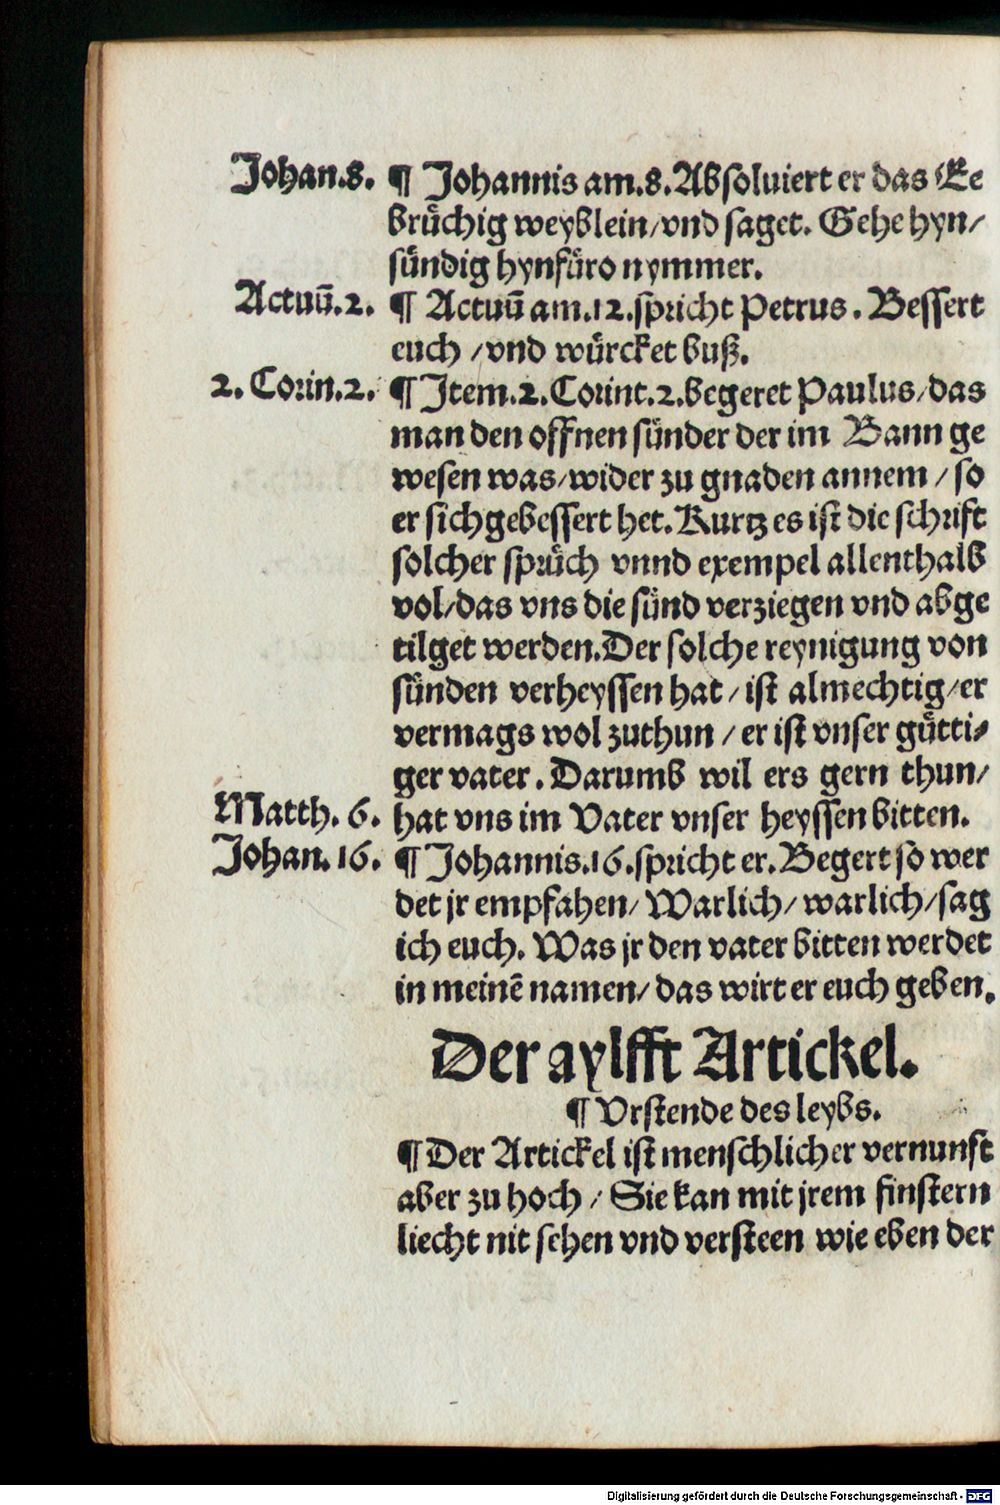 Johan.8. ¶ Johannis am.8.Absoluiert er das Ee
brüchig weyblein/vnd saget. Gehe hyn/
sündig hynfüro nymmer.
Actuū.2. ¶ Actuū am.12.spricht Petrus. Bessert
euch /vnd würcket buß.
2. Corin.2. ¶ Item.2.Corint.2.begeret Paulus/das
man den offnen sünder der im Bann ge
wesen was/wider zu gnaden annem / so
er sich gebessert het.Kurtz es ist die schrift
solcher sprüch vnnd exempel allenthalb
vol/das vns die sünd verziegen vnd abge
tilget werden.Der solche reynigung von
sünden verheyssen hat / ist almechtig/er
vermags wol zuthun / er ist vnser gütti⸗
ger vater. Darumb wil ers gern thun/
Matth. 6. hat vns im Vater vnser heyssen bitten.
Johan. 16. ¶ Johannis.16.spricht er. Begert so wer
det jr empfahen/ Warlich/ warlich/sag
ich euch. Was jr den vater bitten werdet
in meinē namen/ das wirt er euch geben.
Der aylfft Artickel.
¶ Vrstende des leybs.
¶ Der Artickel ist menschlicher vernunft
aber zu hoch / Sie kan mit jrem finstern
liecht nit sehen vnd versteen wie eben der
Digitalisierung gefördert durch die Deutsche Forschungsgemeinschaft - DFG